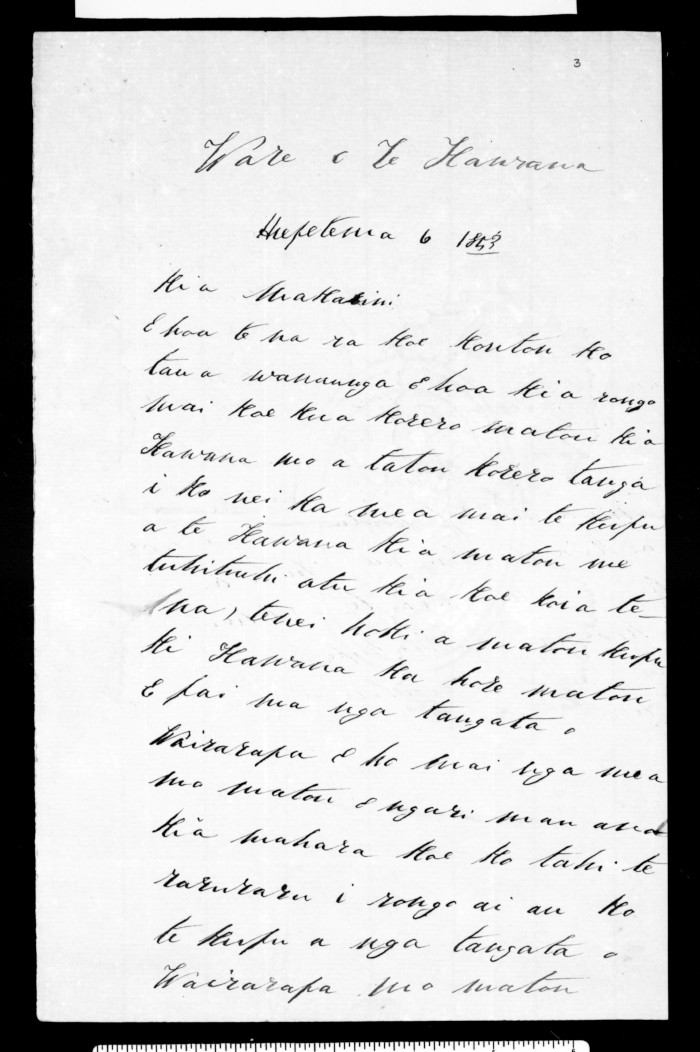 3
Ware o Te Kawana
Hepetema 6 1853
Kia Makarini
E hoa te na ra koe koutou ko
taua wananga E hoa kia rongo
mai koe kua korero matou kia
Kawana mo a tatou korero tanga
i ko nei ka mea mai te kupu
a te Kawana kia matou me
tuhituhi atu kia koe koia te-
na, tenei hoki a matou kupu
ki Kawana ka hore matou
E pai ma nga tangata o
Wairarapa E ho mai nga mea
mo matou E ngari mau ano
kia mahara koe ko tahi te
raruraru i rongo ai au ko
te kupu a nga tangata o
Wairarapa mo matou